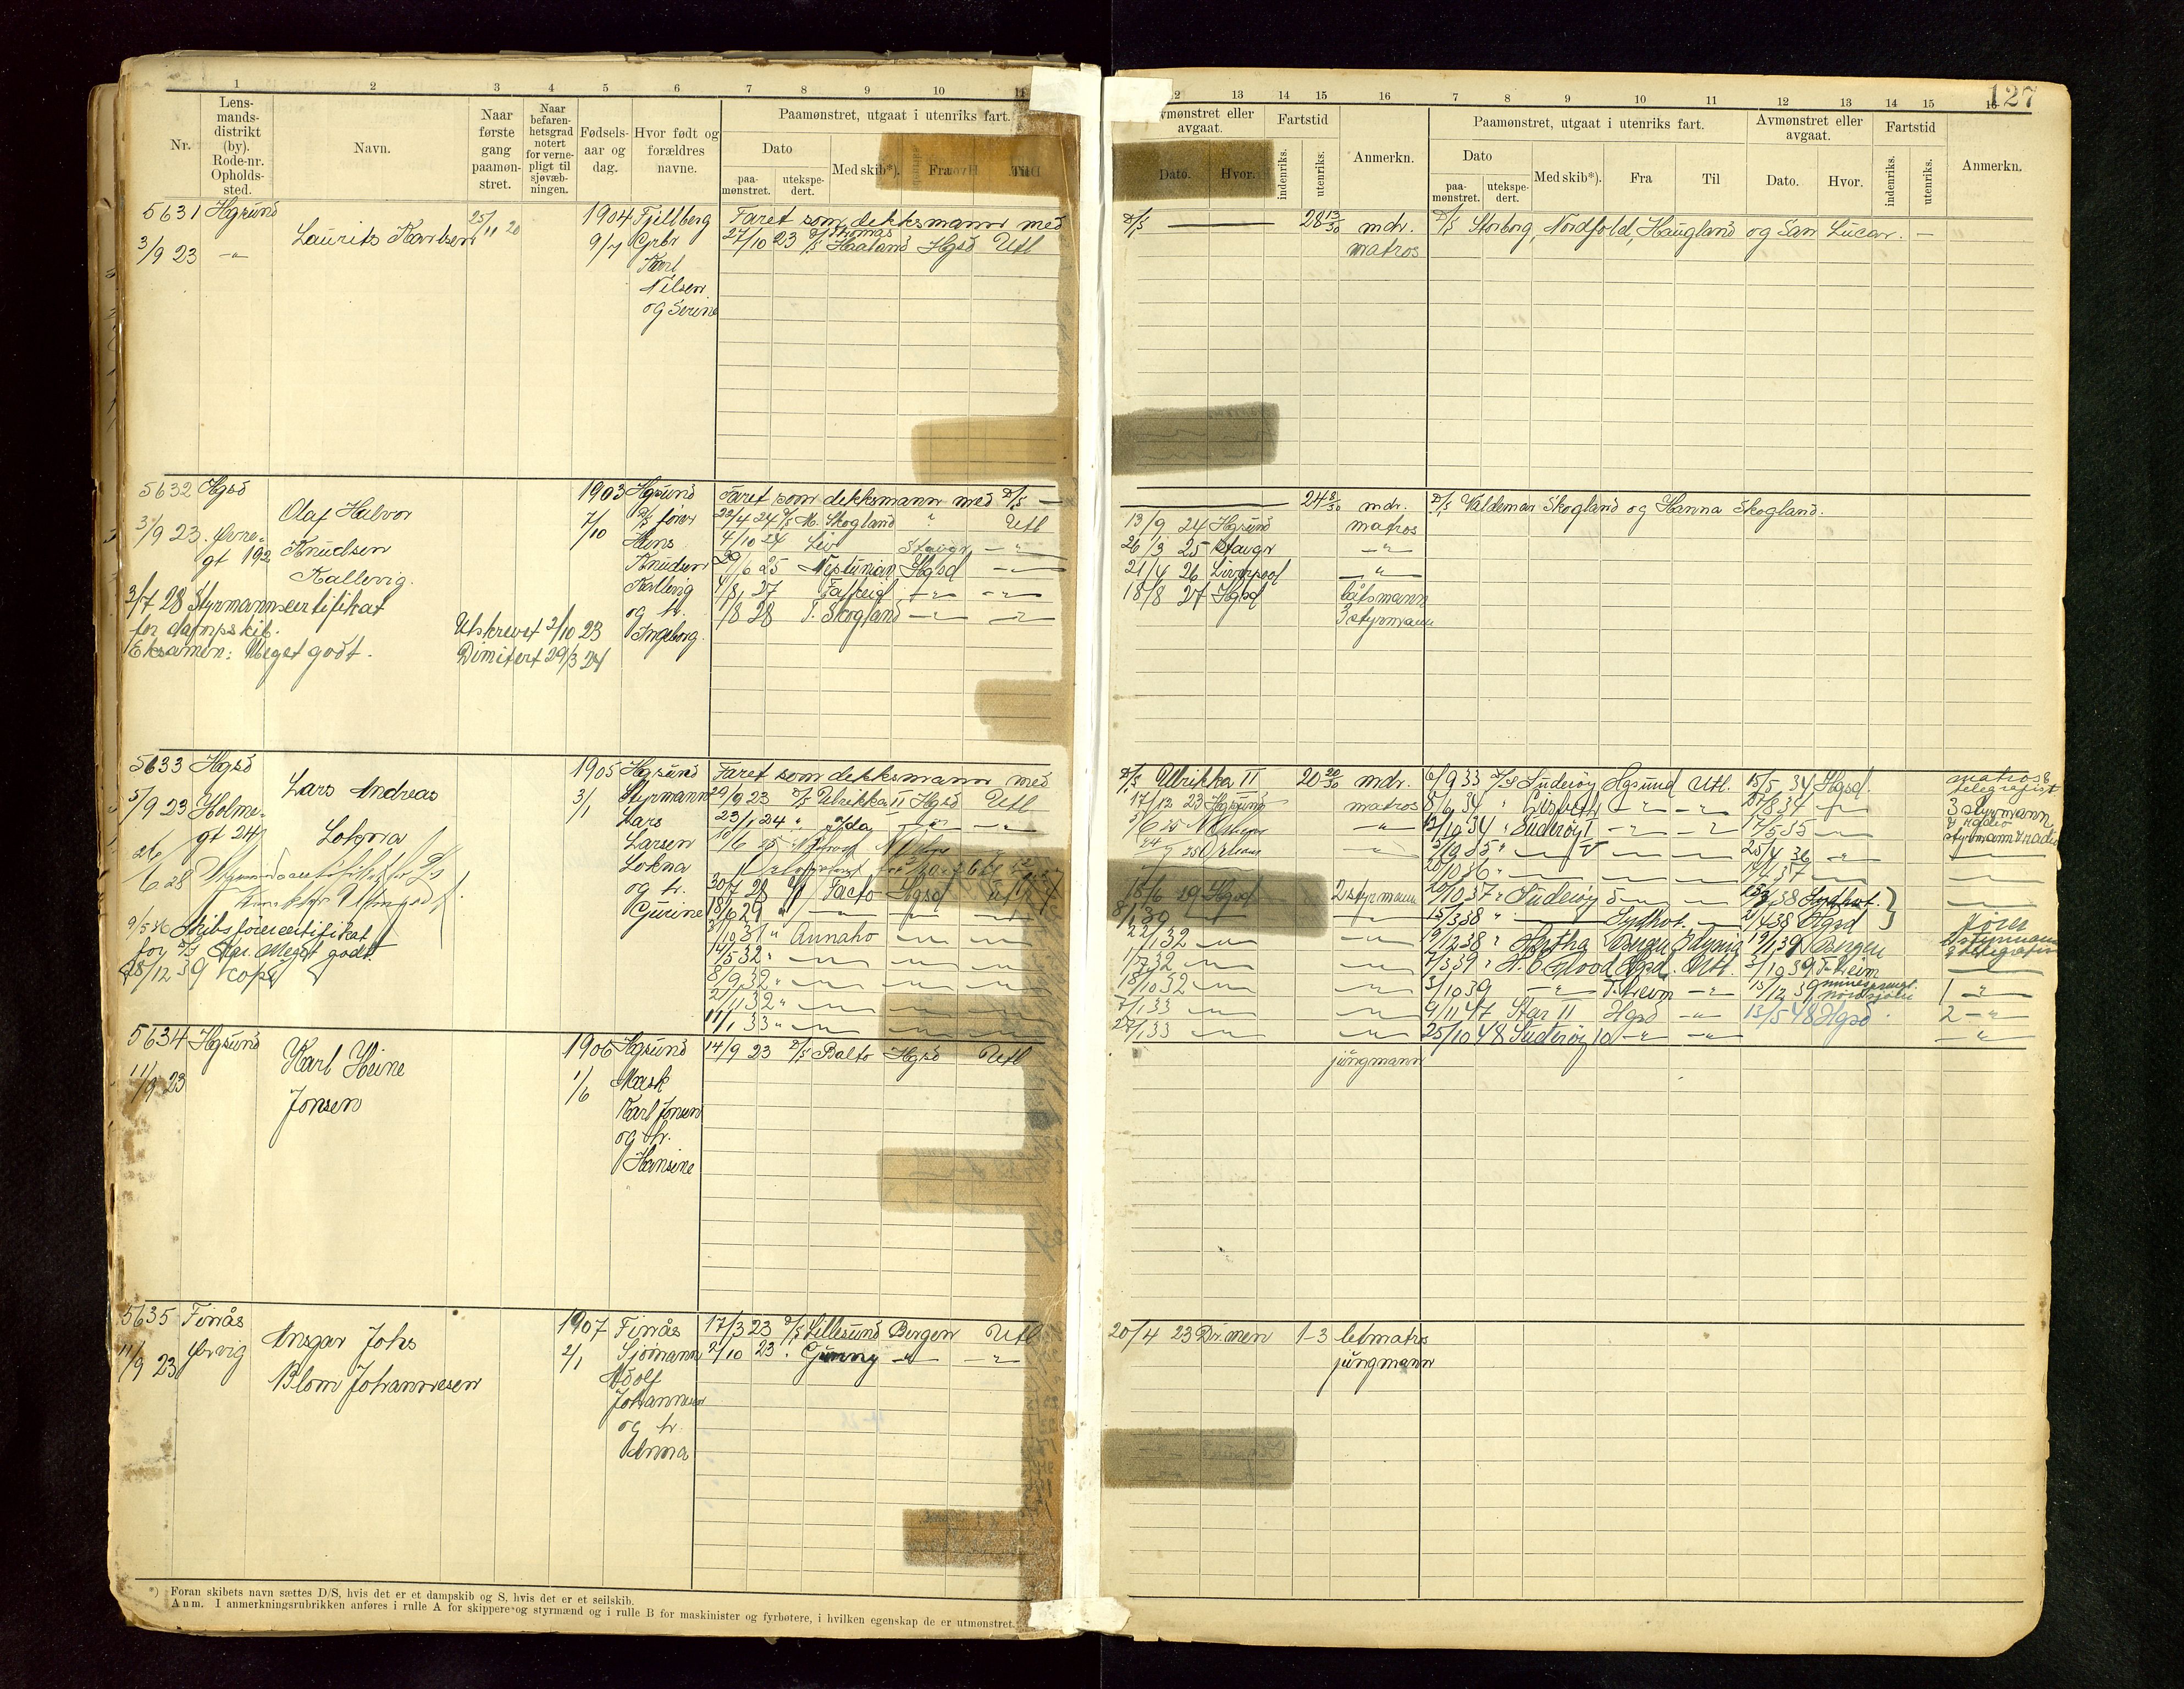 127
1 2 3 4 5 6 7 8 9 10 11
Nr.
Lens-
mands-
distrikt
(by).
Rode-nr.
Opholds-
sted.
Navn.
Naar
første
gang
paamøn-
stret.
Naar
befaren-
hetsgrad
notert
for verne-
pligt til
sjøvæb-
ningen.
Fødsels-
aar og
dag.
Hvor født og
forældres
navne.
Paamønstret, utgaat i utenriks fart.
Dato
paa-
mønstret.
utekspe-
dert.
Med skib*).
Fra
Til
12 13 14 15 16 7 8 9 10 11 12 13 14 15 16
Avmønstret eller
avgaat.
Dato. Hvor.
Fartstid
indenriks.
utenriks.
Anmerkn.
Paamønstret, utgaat i utenriks fart.
Dato
paa-
mønstret.
utekspe-
dert.
Med skib*).
Fra
Til
Avmønstret eller
avgaat.
Dato. Hvor.
Fartstid
indenriks.
utenriks.
Anmerkn.
5631 Hgsund
3/9 23 -"-
Laurits Karlsen
25/11 20
1904
9/7
Fjellberg
Grbr
Karl
Nilsen
og Serine
Faret som dekksmann med
27/10 23 D/S Thomas Haaland Hgsd Utl
D/S — 28 13/30 mdr.
matros
D/S Storborg, Nordfold, Haugland og San Lucar. —
5632 Hgsd
3/9 23. Øvre-
gt 192
Olaf Halvor
Knudsen
Kallevig.
3/7 28 Styrmannscertifikat
for dampskib.
Eksamen: Meget godt.
Utskrevet 2/10 23
Dimitert 29/3 24
1903
7/10
Hgsund
D/S fører
Hans
Knudsen
Kallevig
og h.
Ingeborg.
Faret som dekksmann med D/S —
22/4 24 D/S M. Skogland " Utl
4/10 24 Liv Stavgr -"-
/6 25 Neptunian Hgsd -"-
/8 28 T. Skogland -"- -"-
24 8/30 mdr.
13/9 24 Hgsund matros
26/3 25 Stavgr -"-
21/4 26 Liverpool -"-
18/8 27 Hgsd båtsmann
3 styrmann
D/S Valdemar Skogland og Hanna Skogland.
5633 Hgsd
5/9 23 Holme-
gt 24
Lars Andreas
Lokna
26/6 28
9/5 Skibsførercertifikat
for D/S Meget godt
18/12 39 Kopi
1905
3/1
Hgsund
Styrmann
Lars
Larsen
Lokna
og h.
Gurine
Faret som dekksmann med
29/9 23 D/S Ulrikka II Hgsd Utl
23/1 24 " Ida -"- -"-
30/7 28 D/S Facto Hgsd Utl
18/6 29 " -"- -"- -"-
/10 31 " Annaho -"- -"-
14/5 32 " -"- -"- -"-
8/9 32 " -"- -"- -"-
2/11 32 " -"- -"- -"-
11/1 33 " -"- -"- -"-
D/S Ulrikka II 20 20/30 mdr.
17/12 23 Hgsund matros
18/6 29 Hgsd 2 styrmann
22/1 32 -"- -"-
1/7 32 -"- -"-
18/10 32 -"- -"-
7/1 33 -"- -"-
27/1 33 -"- -"-
6/9 33 D/S Suderøy Hgsund Utl. 15/5 34 Hgsd. matros &
telegrafist
8/6 34 " Lisbeth -"- -"- 27/8 34 -"- 3 styrmann
/10 34 " Suderøy 1 -"- -"- 17/5 35 -"- styrmann & radio
/10 35 " -"- V -"- -"- 25/4 36 -"-
20/10 36 " -"- -"- -"- 17/4 37 -"-
20/10 37 " Suderøy 5 -"- -"- 15/3 38 Sydhvt.
15/3 38 " — Sydhvt. -"- 21/4 38 Hgsd
19/12 38 " Hertha Bergen 19/1 39 Bergen
7/3 39 " Hgsd. Utl. 3/10 39 T.heim
3/10 39 -"- T.heim -"- 15/12 39 minesprengt
Nordsjøen 1 -"-
9/11 47 Star II Hgsd -"- 13/5 48 Hgsd. 2 -"-
25/10 48 Suderøy 10 -"- -"- -"-
5634 Hgsund
11/9 23
Karl Heine
Jonsen
1906
1/6
Hgsund
Mask
Karl Jonsen
og h.
Hansine
14/9 23 D/S Balto Hgsd Utl
jungmann
5635 Finnås
11/9 23 Ørvig
Ansgar Johs
Blom Johannesen
1907
2/1
Finnås
Sjømann
Adolf
Johannesen
og h.
Anna
17/3 23 D/S Lillesund Bergen Utl
2/10 23 " Gunny -"- -"-
20/4 23 Dr.men 1-3 letmatros
jungmann
*) Foran skibets navn sættes D/S, hvis det er et dampskib og S, hvis det er et seilskib.
Anm. I anmerkningsrubrikken anføres i rulle A for skippere og styrmænd og i rulle B for maskinister og fyrbøtere, i hvilken egenskap de er utmønstret.